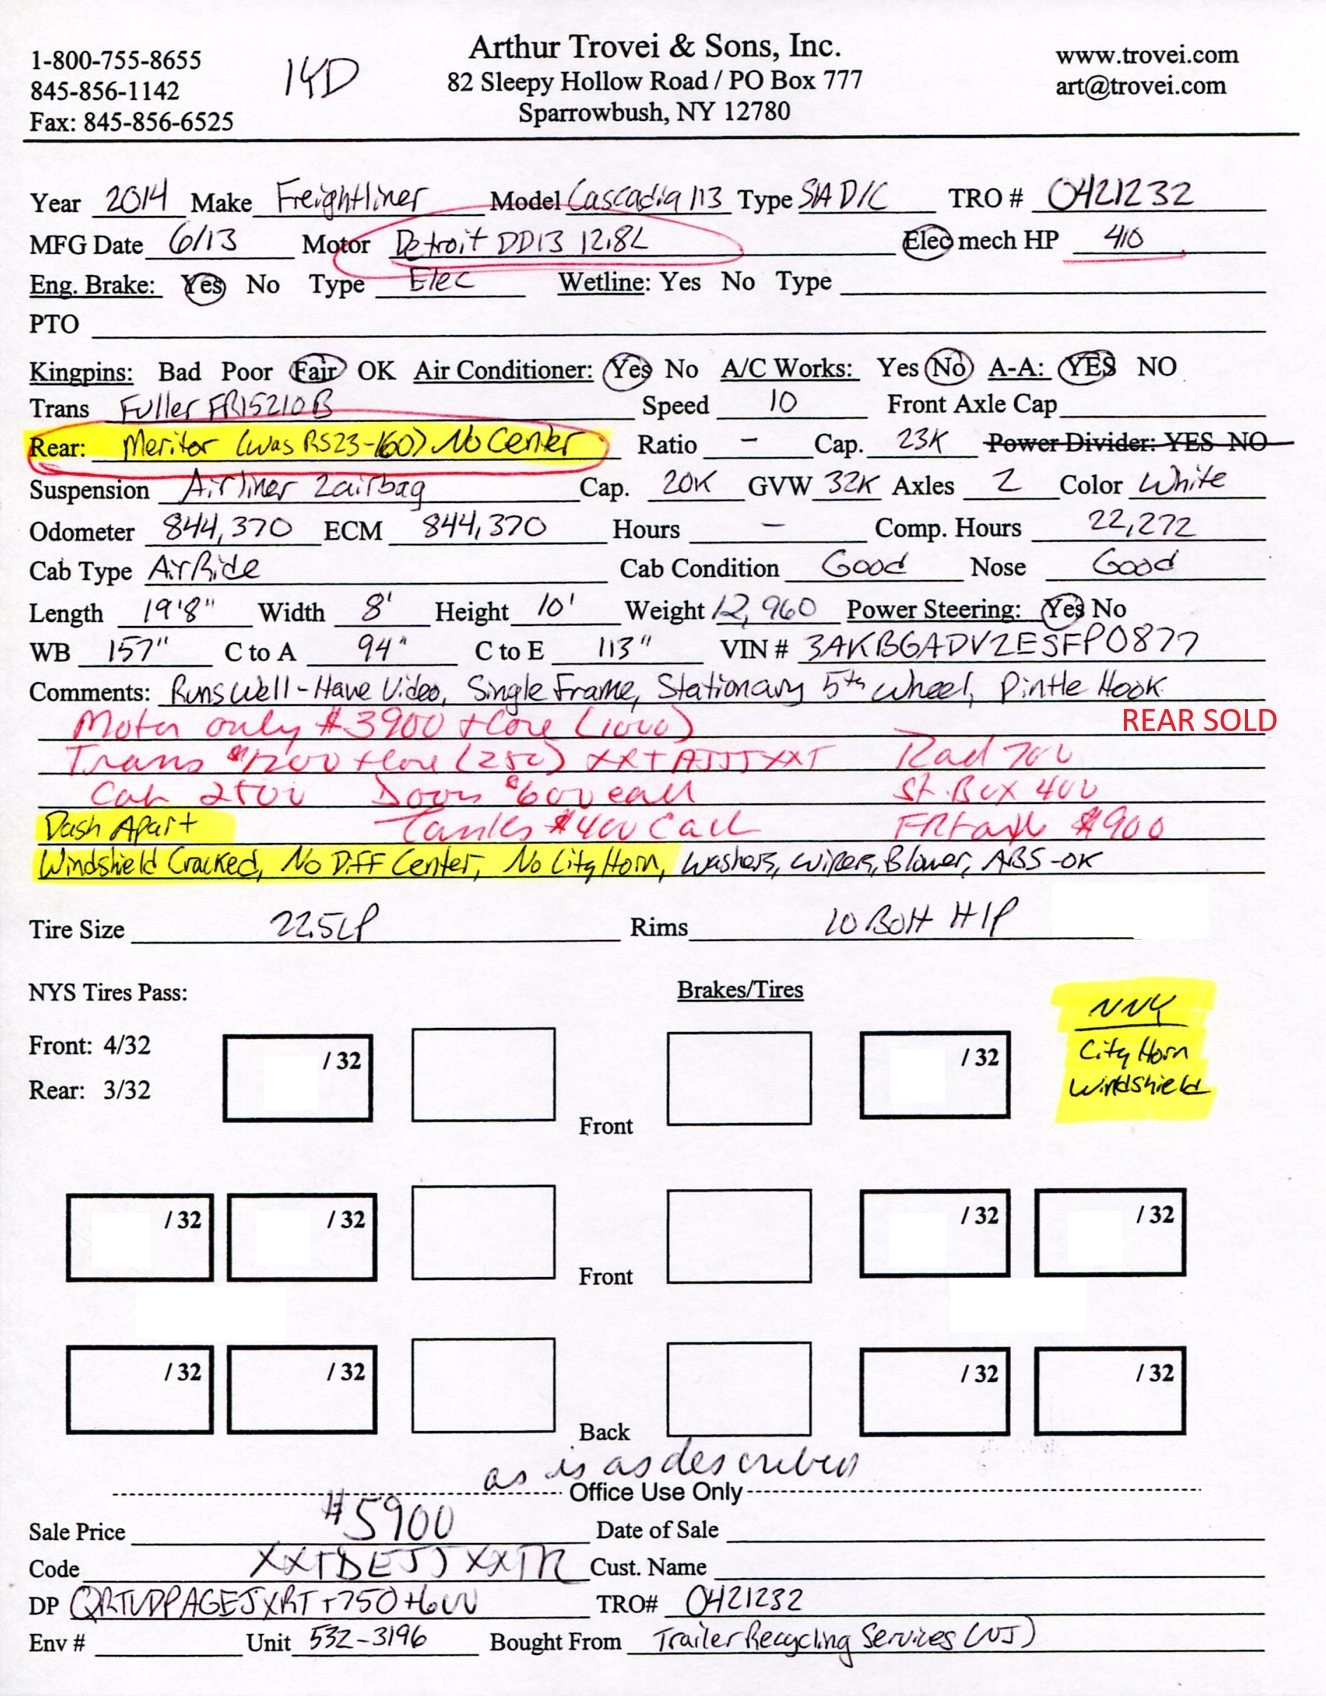 1-800-755-8655
845-856-1142
Fax: 845-856-6525
14D
Arthur Trovei & Sons, Inc.
82 Sleepy Hollow Road / PO Box 777
Sparrowbush, NY 12780
www.trovei.com
art@trovei.com
Year 2014 Make Freightliner Model Cascadia 113 Type S/A D/C TRO # 0421232
MFG Date 6/13 Motor Detroit DD13 12.8L Elec mech HP 410
Eng. Brake: Yes No Type Elec Wetline: Yes No Type
PTO
Kingpins: Bad Poor Fair OK Air Conditioner: Yes No A/C Works: Yes No A-A: YES NO
Trans Fuller FR15210B Speed 10 Front Axle Cap
Rear: Meritor (was RS23-160) No Center Ratio - Cap. 23K Power Divider: YES NO
Suspension Airliner 2airbag Cap. 20K GVW 32K Axles 2 Color White
Odometer 844,370 ECM 844,370 Hours - Comp. Hours 22,272
Cab Type AirRide Cab Condition Good Nose Good
Length 19'8" Width 8' Height 10' Weight 12,960 Power Steering: Yes No
WB 157" C to A 94" C to E 113" VIN # 3AKBGADV2ESFP0877
Comments: Runs Well-Have Video, Single Frame, Stationary 5th Wheel, Pintle Hook
Motor only #3900 + Core (1000) REAR SOLD
Trans $1200 + Core (250) XRTAJJTXXT Rad 700
Cab 2500 Doors $600 each St. Box 400
Dash Apart Tanks $400 Each FRT axle $900
Windshield Cracked, No Diff Center, No City Horn, Washers, Wipers, Blower, ABS-OK
Tire Size 22.5LP Rims 10 Bolt H/P
NYS Tires Pass: Brakes/Tires
NNY
City Horn
Windshield
Front: 4/32
Rear: 3/32
/ 32 / 32
Front
/ 32 / 32 / 32 / 32
Front
/ 32 / 32 / 32 / 32
Back
as is as described
Office Use Only
Sale Price #5900 Date of Sale
Code Cust. Name
DP QRTVDPAGEJXRT+750+600 TRO# 0421232
Env # Unit 532-3196 Bought From Trailer Recycling Services (NJ)